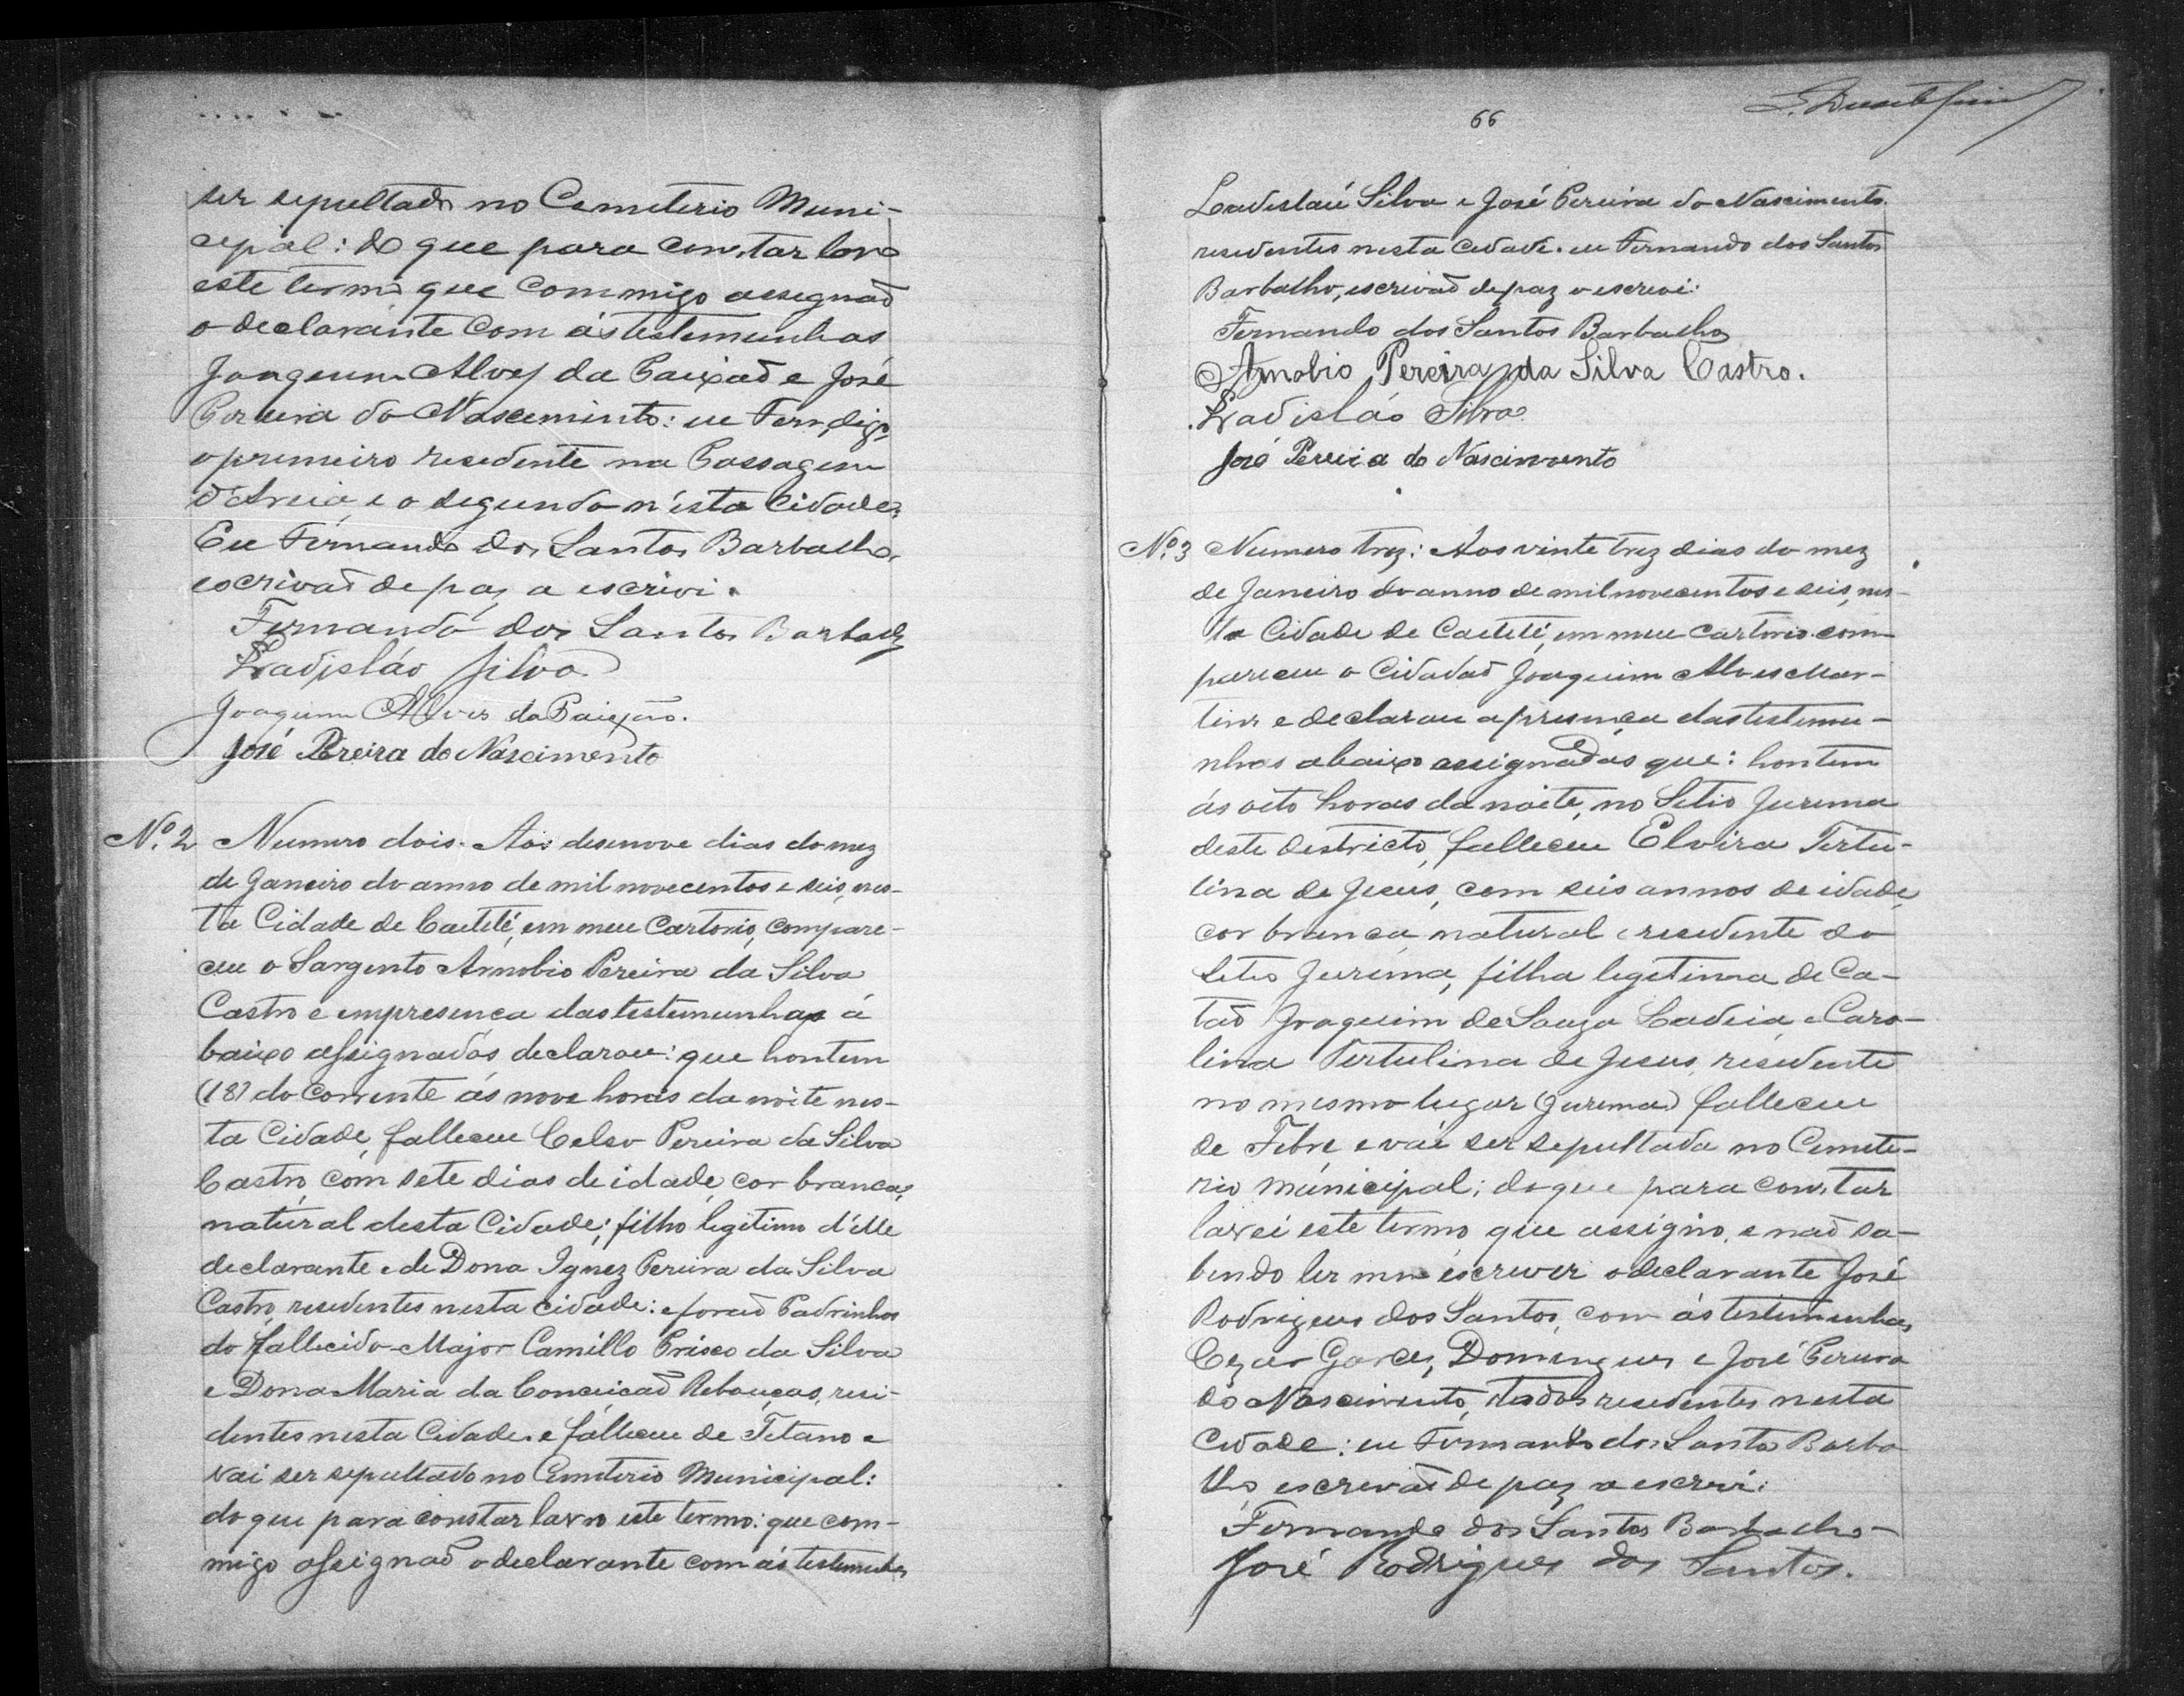 ser sepultado no Cemeterio Muni-
cipal: do que para constar lavro
este termo que commigo assegnaõ
o declarante com ás testemunhas
Joaquim Alves da Paixaõ e José
Pereira do Nascimento: eu Fern, digo,
o premeiro resedente na Passagem
d'Areia, e o segundo n'ésta Cidade.
Eu Fernando dos Santos Barbalho,
escrivaõ de paz a escrivi.
Fernando dos Santos Barbalho
Ladisláo Silva
Joaquim Alves da Paixão.
José Pereira do Nascimento
Nº. 2 Numero dois. Aos desenove dias do mez
de Janeiro do anno de mil novecentos e seis, nes-
ta Cidade de Caetété, em meu Cartorio, compare-
ceu o Sargento Arnobio Pereira da Silva
Castro e empresença das testemunhas á
baixo assignadas declarou: que hontem
(18) do Corrente ás nove horas da noite nes-
ta Cidade, falleceu Celso Pereira da Silva
Castro, com sete dias de idade, cor branca,
natural desta Cidade; filho legitimo d'elle
declarante e de Dona Ignez Pereira da Silva
Castro, resedentes nesta cidade: e foraõ Padrinhos
do fallecido Major Camillo Prisco da Silva
e Dona Maria da Conceicaõ Rebouças, resi-
dentes nesta Cidade. e falleceu de Tetano e
vai ser sepultado no Cemeterio Municipal:
do que para constar lavro este termo: que com-
migo assignaõ o declarante com ás testemunhas
66
Ladislaú Silva e José Pereira do Nascimento.
resedentes nesta Cidade. eu Fernando dos Santos
Barbalho, escrivaõ de paz o escrevi:
Fernando dos Santos Barbalho
Arnobio Pereira da Silva Castro.
Ladisláo Silva
José Pereira do Nascimento
Nº. 3 Numero trez: Aos vinte trez dias do mez
de Janeiro do anno de mil novecentos e seis, nes-
ta Cidade de Caetété, em meu cartorio com-
pareceu o Cidadaõ Joaquim Alves Mar-
tins e declarou a presença das testemu-
nhas abaixo assignadas que: hontem
ás oito horas da noite, no Setio Jurema
deste destricto, falleceu Elvira Tertu-
lina de Jesus, com seis annos de idade,
cor branca, natural e resedente do
Setio Jurema, filha legitima de Ca-
taõ Joaquim de Souza Ladeia e Caro-
lina Tertulina de Jesus, resedente
no mesmo lugar (Jurema) falleceu
de Febre e vai ser sepultada no Cemete-
rio municipal; do que para constar
lavrei este termo que assigno, e naõ sa-
bendo ler nem escrever o declarante José
Rodrigues dos Santos, com ás testemunhas
Cezar Garcez Domingues e José Pereira
do Nascimento, todos resedentes nesta
Cidade: eu Fernando dos Santos Barba
lho escrevaõ de paz o escrevi:
Fernando dos Santos Barbalho
José Rodrigues dos Santos.